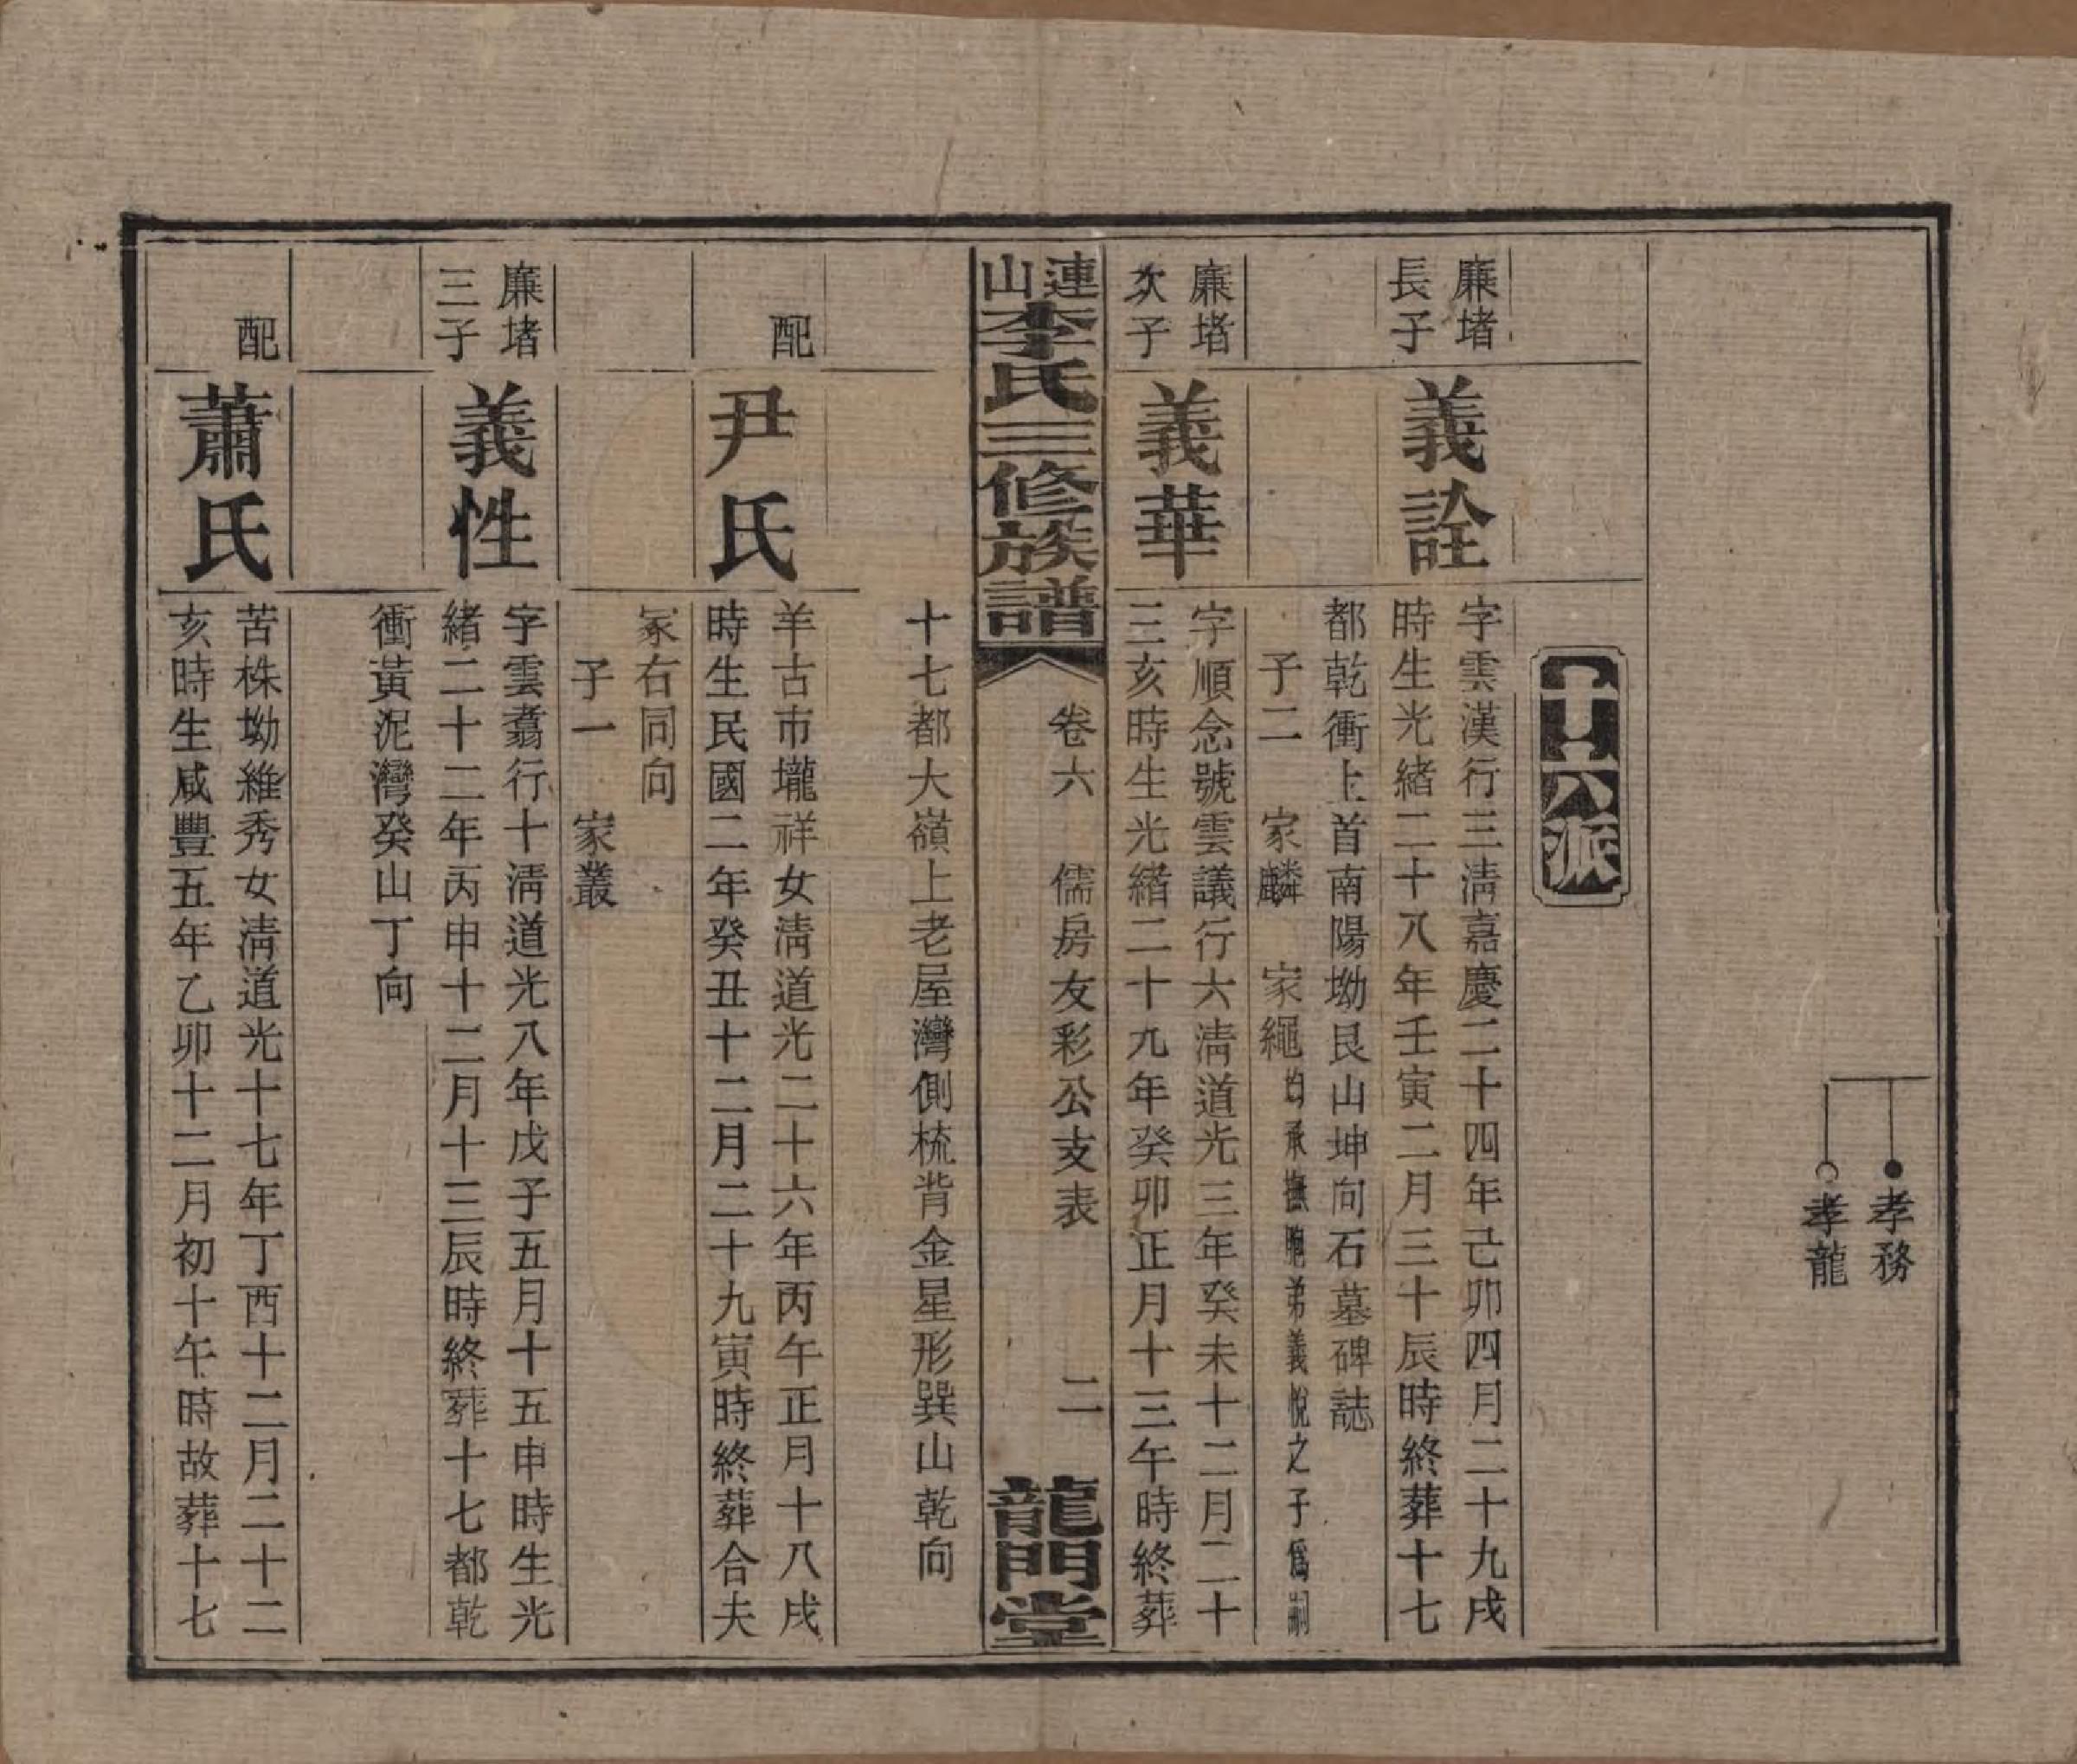 孝務
孝龍
十六派
廉堵
長子
義詮
字雲漢行三淸嘉慶二十四年己卯四月二十九戌
時生光緒二十八年壬寅二月三十辰時終葬十七
都乾衝上首南陽坳艮山坤向石墓碑誌
子二 家麟 家繩 均承撫胞弟義悅之子爲嗣
廉堵
次子
義華
字順念號雲議行六淸道光三年癸未十二月二十
三亥時生光緖二十九年癸卯正月十三午時終葬
連山李氏三修族譜 卷六 儒房友彩公支表 二 龍門堂
十七都大嶺上老屋灣側梳背金星形巽山乾向
配
尹氏
羊古市壠祥女淸道光二十六年丙午正月十八戌
時生民國二年癸丑十二月二十九寅時終葬合夫
冢右同向
子一 家叢
廉堵
三子
義性
字雲翥行十淸道光八年戊子五月十五申時生光
緒二十二年丙申十二月十三辰時終葬十七都乾
衝黃泥灣癸山丁向
配
蕭氏
苦株坳維秀女淸道光十七年丁酉十二月二十二
亥時生咸豐五年乙卯十二月初十午時故葬十七